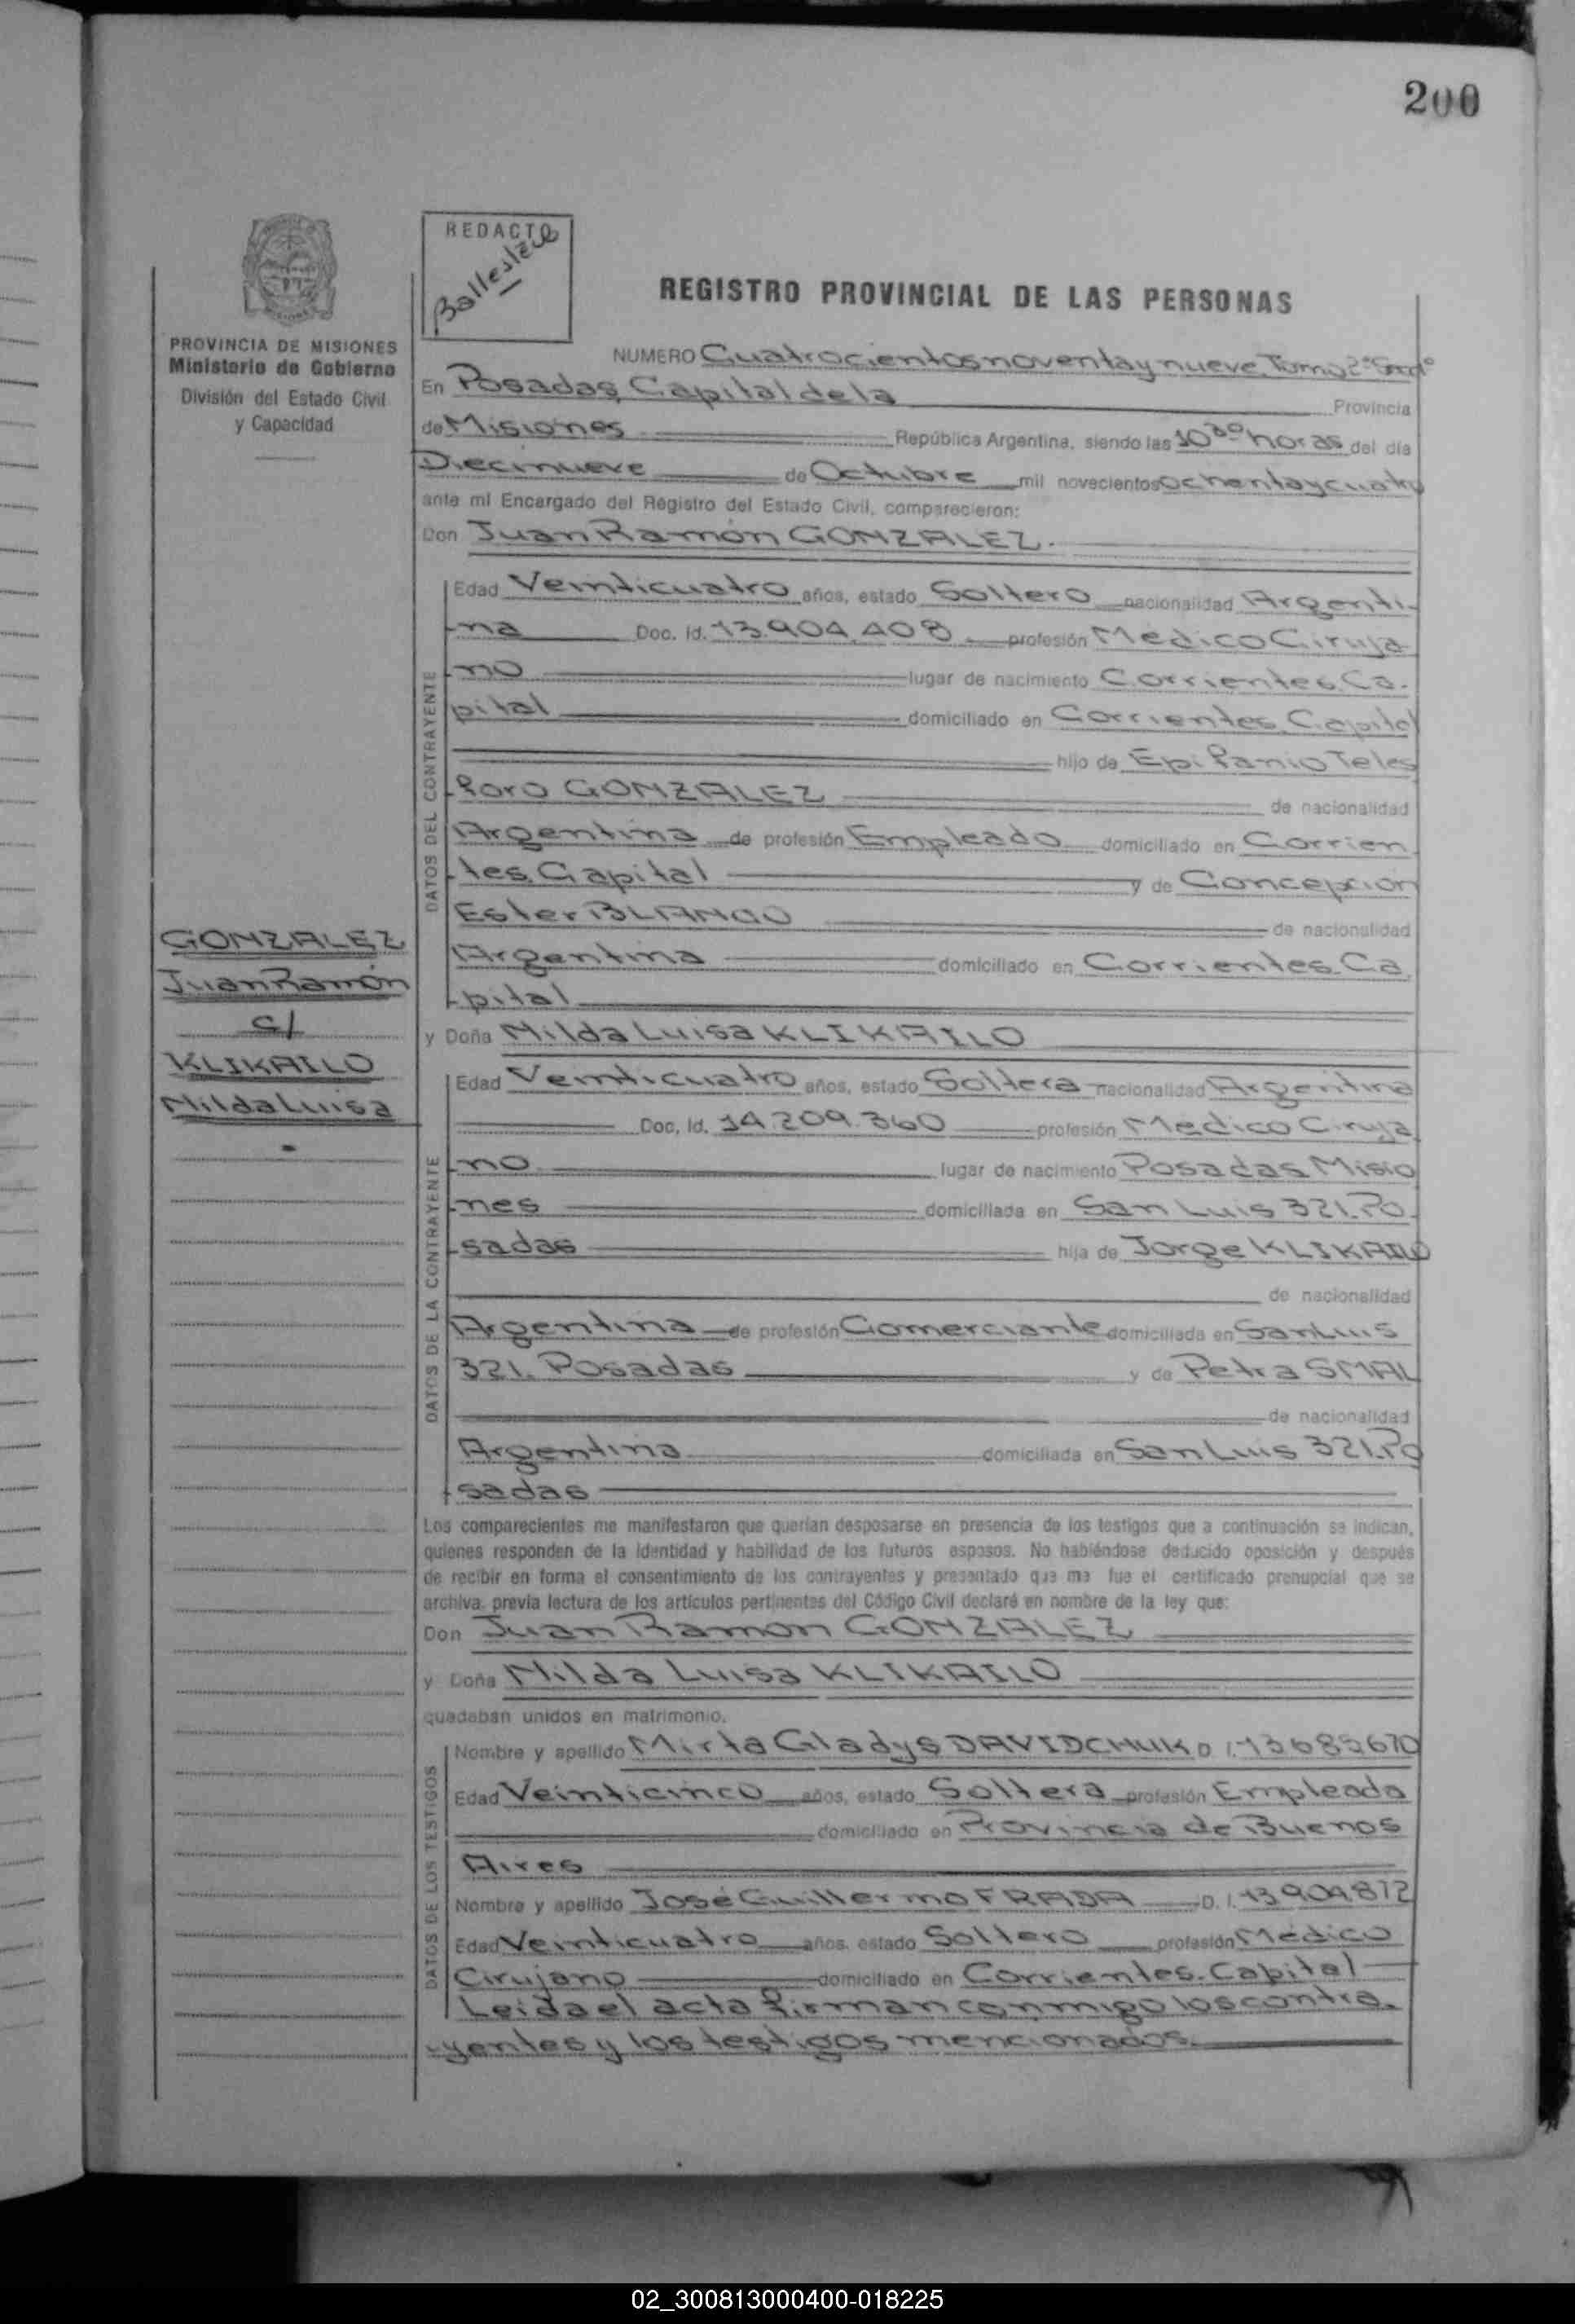 200
REDACTO
REGISTRO PROVINCIAL DE LAS PERSONAS
PROVINCIA DE MISIONES
Ministerio de Gobierno
División del Estado Civil
y Capacidad
NUMERO Cuatrocientos noventa y nueve. Tomo 2º
En Posadas, Capital de la Provincia
de Misiones República Argentina, siendo las 10 30 horas del día
Diecinueve de Octubre mil novecientos ochenta y cuatro
ante mi Encargado del Registro del Estado Civil, comparecieron:
Don Juan Ramón GONZALEZ.
DATOS DEL CONTRAYENTE
Edad Veinticuatro años, estado Soltero nacionalidad Argenti-
-na Doc. Id. 13.904.408 profesión Médico Ciruja-
-no lugar de nacimiento Corrientes. Ca.
pital domiciliado en Corrientes. Capital
hijo de Epifanio Teles
-foro GONZALEZ de nacionalidad
Argentina de profesión Empleado domiciliado en Corrien-
-tes. Capital y de Concepción
Ester BLANCO de nacionalidad
Argentina domiciliado en Corrientes. Ca
-pital
GONZALEZ
Juan Ramón
c/
KLIKAILO
Milda Luisa
y Doña Milda Luisa KLIKAILO
DATOS DE LA CONTRAYENTE
Edad Veinticuatro años, estado Soltera nacionalidad Argentina
Doc. Id. 14.209.360 profesión Medico Ciruja
-no lugar de nacimiento Posadas Misio
-nes domiciliada en San Luis 321. Po-
-sadas hija de Jorge KLIKAILO
de nacionalidad
Argentina de profesión Comerciante domiciliada en San Luis
321. Posadas y de Petra SMAL
de nacionalidad
Argentina domiciliada en San Luis 321. Po
-sadas
Los comparecientes me manifestaron que querían desposarse en presencia de los testigos que a continuación se indican,
quienes responden de la identidad y habilidad de los futuros esposos. No habiéndose deducido oposición y después
de recibir en forma el consentimiento de los contrayentes y presentado que me fue el certificado prenupcial que se
archiva, previa lectura de los artículos pertinentes del Código Civil declaré en nombre de la ley que:
Don Juan Ramon GONZALEZ
y Doña Milda Luisa KLIKAILO
quedaban unidos en matrimonio.
DATOS DE LOS TESTIGOS
Nombre y apellido Mirta Gladys DAVIDCHUK D.I. 13685670
Edad Veinticinco años, estado Soltera profesión Empleada
domiciliado en Provincia de Buenos
Aires
Nombre y apellido José Guillermo FRADA D. I. 13.904.872
Edad Veinticuatro años, estado Soltero profesión Médico
Cirujano domiciliado en Corrientes. Capital
Leida el acta firman conmigo los contra-
-yentes y los testigos mencionados.
02_300813000400-018225